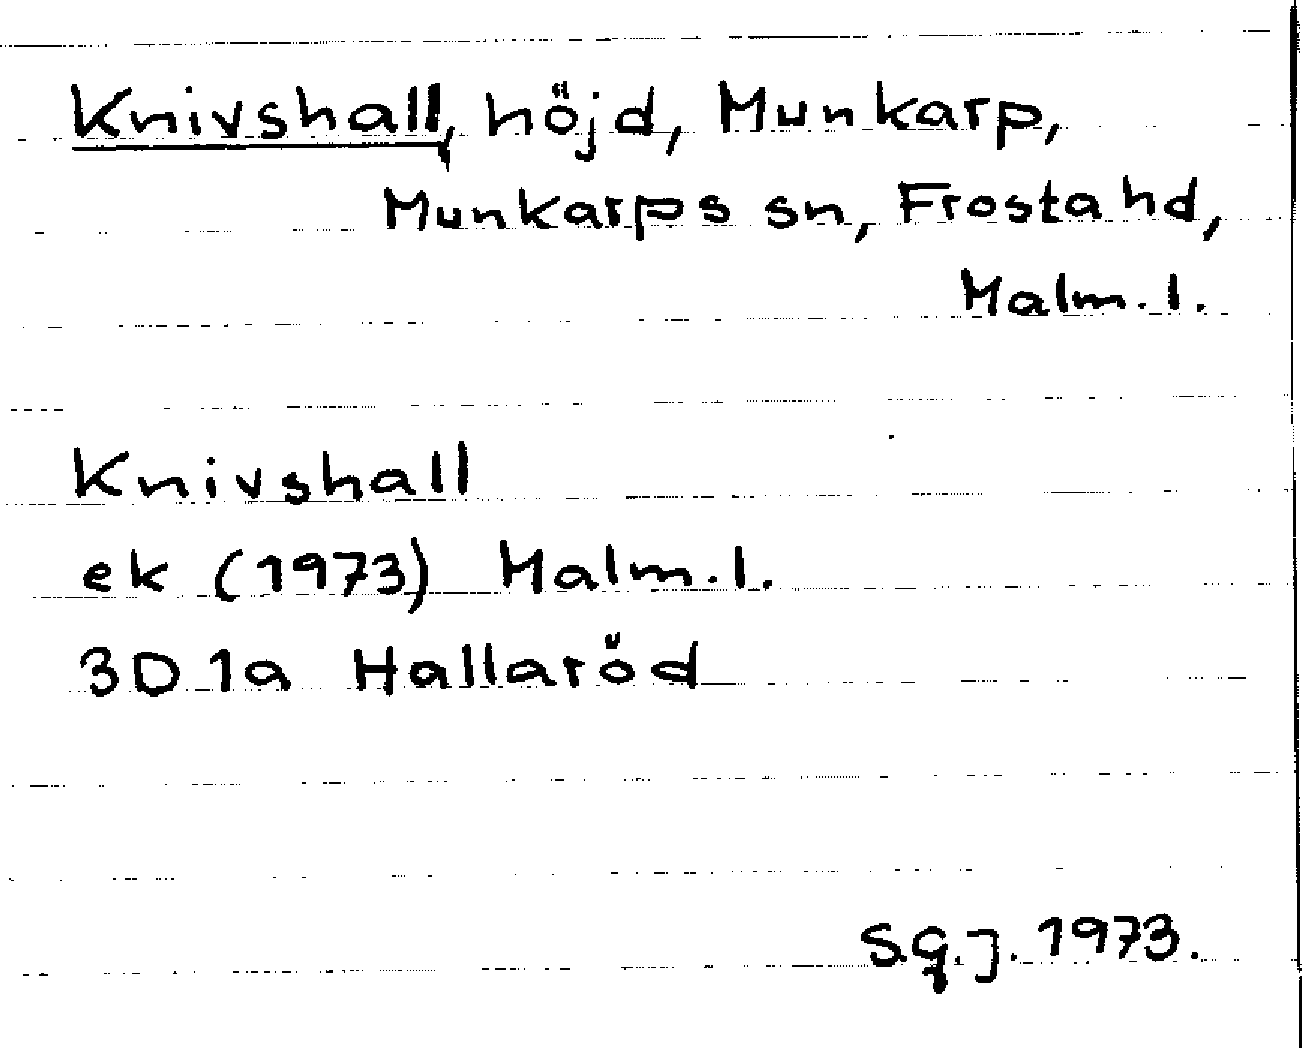 Knivshall, höjd, Munkarp,
Munkarps sn, Frosta hd,
Malm. l.
Knivshall
ek (1973) Malm. l.
3D 1a Hallaröd
S.g.J. 1973.